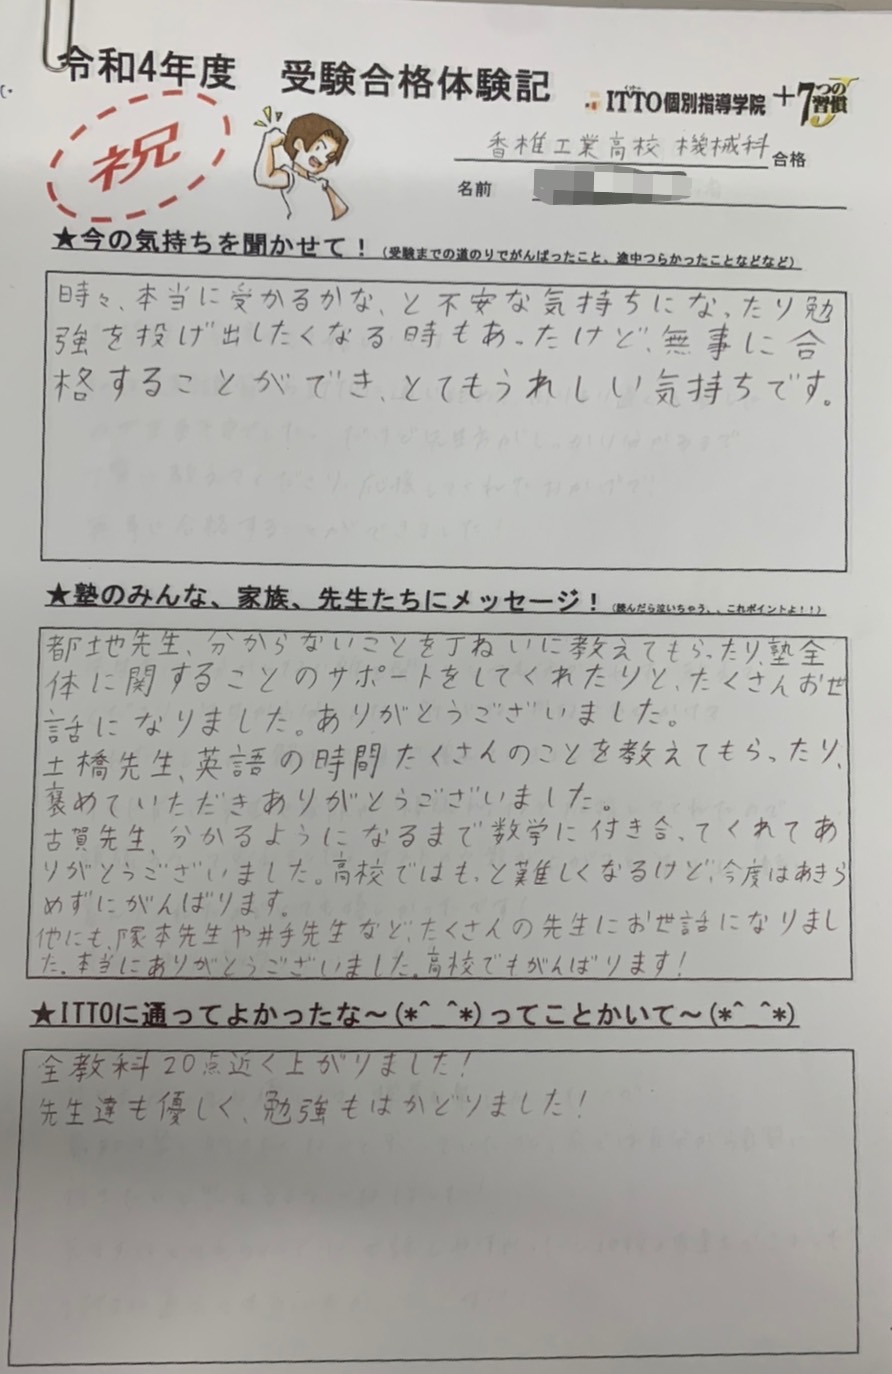 令和4年度 受験合格体験記
祝
ITTO個別指導学院+7つの習慣J
香椎工業高校 機械科 合格
名前
★今の気持ちを聞かせて!(受験までの道のりでがんばったこと、途中つらかったことなどなど)
時々、本当に受かるかな、と不安な気持ちになったり勉
強を投げ出したくなる時もあったけど、無事に合
格することができ、とてもうれしい気持ちです。
★塾のみんな、家族、先生たちにメッセージ!(読んだら泣いちゃう、、これポイントよ!!)
都地先生、分からないことを丁ねいに教えてもらったり、塾全
体に関することのサポートをしてくれたりと、たくさんお世
話になりました。ありがとうございました。
土橋先生、英語の時間たくさんのことを教えてもらったり、
褒めていただきありがとうございました。
古賀先生、分かるようになるまで数学に付き合ってくれてあ
りがとうございました。高校ではもっと難しくなるけど、今度はあきら
めずにがんばります。
他にも、塚本先生や井手先生など、たくさんの先生にお世話になりまし
た。本当にありがとうございました。高校でもがんばります!
★ITTOに通ってよかったな～(*^_^*)ってことかいて～(*^_^*)
全教科20点近く上がりました!
先生達も優しく、勉強もはかどりました!